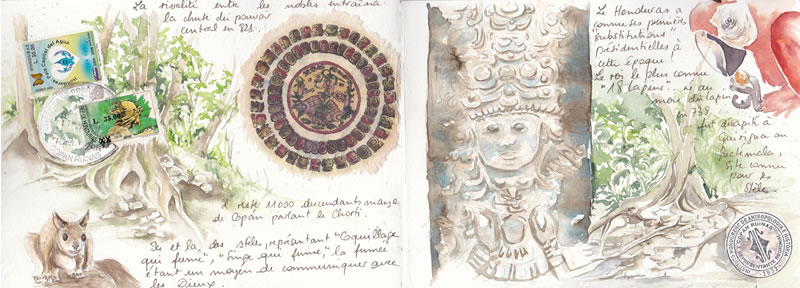 La rivalité entre les nobles entraîna
la chute du pouvoir
central en 822.
Agua
L. 25.00
COPAN RUINAS
Il reste 11000 descendants mayas
de Copan parlant le Chorti.
Ici et là, des stèles représentant "Coquillage
qui fume", "Singe qui fume", la fumée
étant un moyen de communiquer avec
les Dieux.
Le Honduras a
connu ses premières
"substitutions"
présidentielles à
cette époque!
Le roi le plus connu
"18 lapins"... né au
mois du lapin
en 738
fut décapité à
Quirigua au
Guatemala,
site connu
pour ses
stèles.
INSTITUTO HONDUREÑO DE ANTROPOLOGIA E HISTORIA
COPAN RUINAS